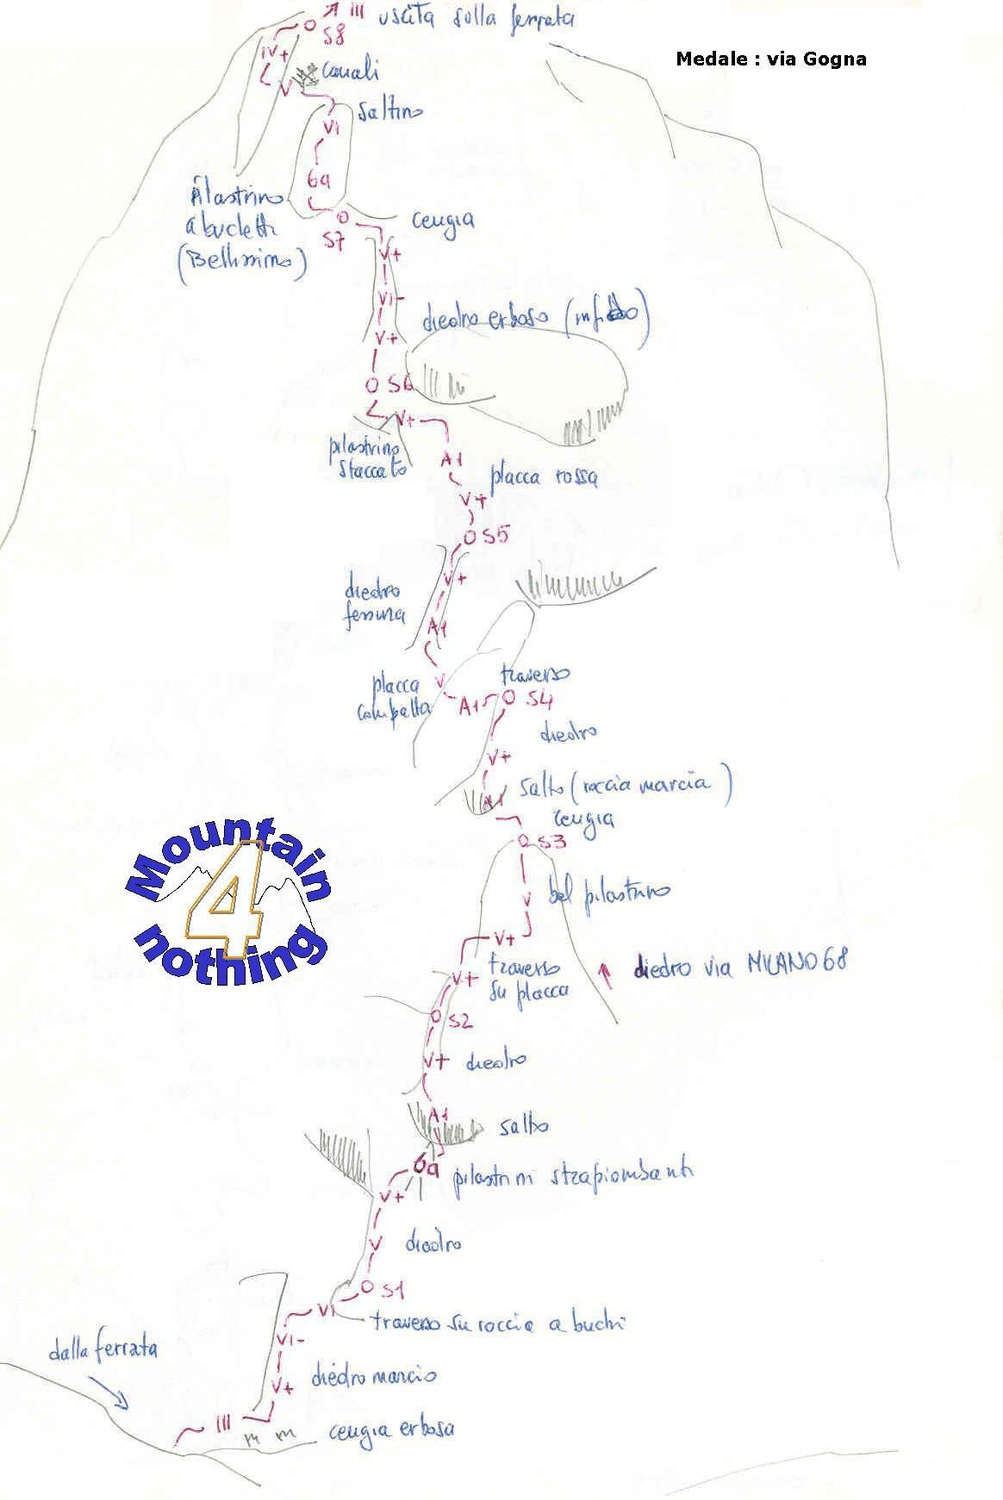 III uscita sulla ferrata
S8
Medale : via Gogna
IV+
canali
V
saltino
VI
6a
Pilastrino
a bucketti
(Bellissimo)
cengia
S7
V+
VI-
diedro erboso
V+
S6
V+
pilastrino
staccato
A1
placca rossa
V+
S5
V+
diedro
fessura
A1
traverso
placca
compatta
V
A1
S4
diedro
V+
salto (roccia marcia)
A1
cengia
S3
Mountain
4
nothing
V
bel pilastrino
V+
traverso
su placca
diedro via MILANO 68
V+
S2
V+
diedro
A1
salto
6a
pilastrini strapiombanti
V+
V
diedro
S1
VI
traverso su roccia a buchi
VI-
dalla ferrata
V+
diedro marcio
III
cengia erbosa